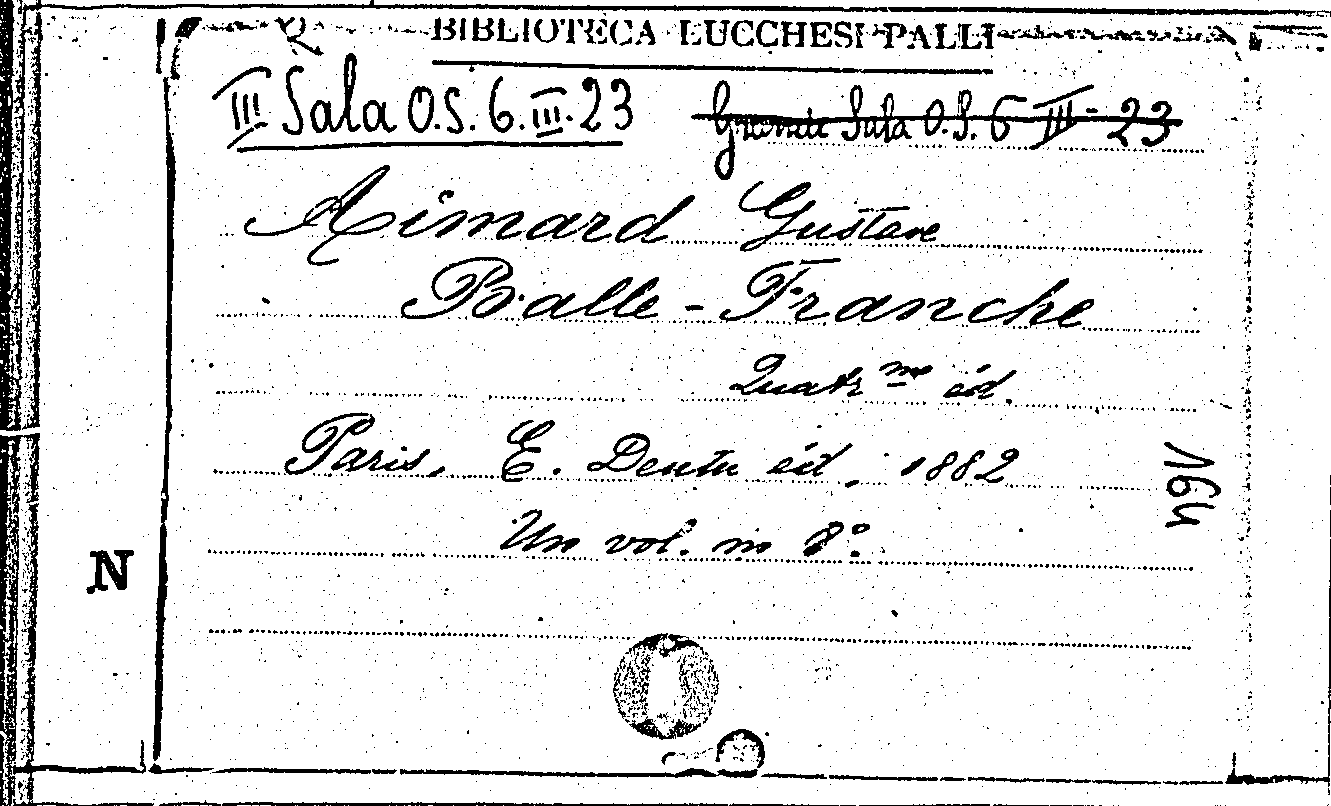 BIBLIOTECA LUCCHESI-PALLI
III Sala O.S. 6.III.23 Grande Sala O.S. 6 III-23
Aimard Gustave
Balle-Franche
Quatr me éd.
Paris, E. Dentu éd., 1882
Un vol. in 8º.
164
N